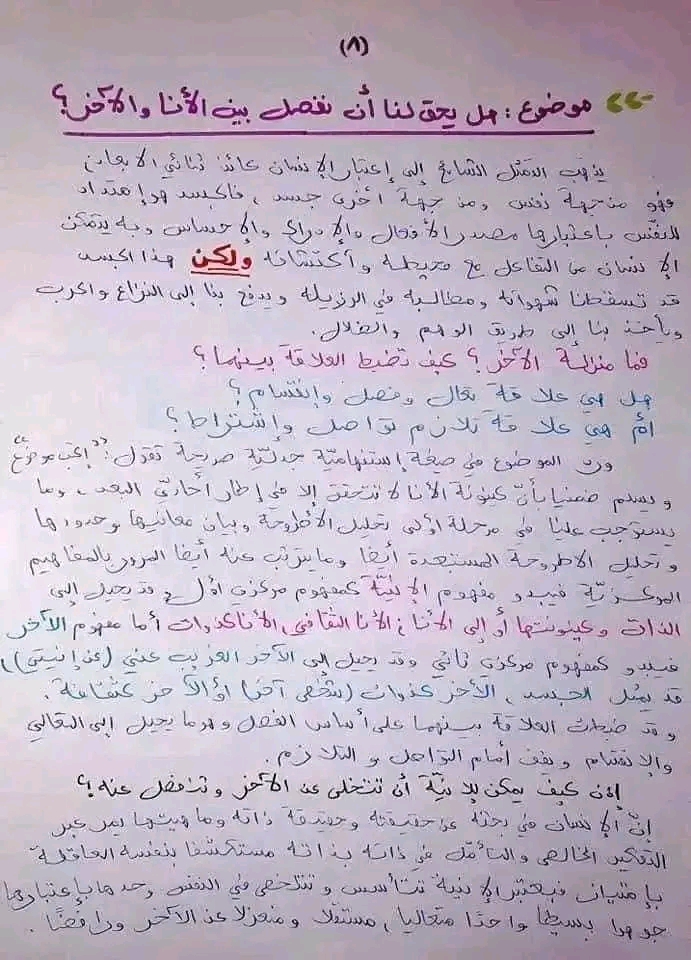 (٨)
موضوع: هل يحق لنا أن نفصل بين الأنا والآخر؟
يذهب التمثل الشائع إلى إعتبار الإنسان كائن ثنائي الأبعاد
فهو من جهة نفس ومن جهة أخرى جسد، فالجسد هو إمتداد
للنفس باعتبارها مصدر الأفعال والإدراك والإحساس وبه يتمكن
الإنسان من التفاعل مع محيطه وأكتشافه ولكن هذا الجسد
قد تسقطنا شهواته ومطالبه في الرذيلة ويدفع بنا إلى النزاع والحرب
ويأخذ بنا إلى طريق الوهم والضلال.
فما منزلة الآخر؟ كيف تضبط العلاقة بينهما؟
هل هي علاقة تعال وفصل وإنقسام؟
أم هي علاقة تلازم تواصل وإشتراط؟
ورد الموضوع في صيغة إستفهامية جدلية صريحة تقول: "أكتب موضوع"
ويسلم ضمنيا بأن كينونة الأنا لا تتحقق إلا في إطار أحادي البعد، وما
يستوجب علينا في مرحلة أولى تحليل الأطروحة وبيان معانيها وحدودها
وتحليل الاطروحة المستبعدة أيضا وما يترتب عنه أيضا المرور بالمفاهيم
المركزية فيبدو مفهوم الإنية كمفهوم مركزي أول قد يحيل إلى
الذات وكينونتها أو إلى الأنا، الأنا الثقافي، الأنا كذوات أما مفهوم الآخر
فيبدو كمفهوم مركزي ثاني وقد يحيل الى الآخر الغريب عني (عن إنيتي)،
قد يمثل الجسد، الآخر كذوات (شخص آخر) أو الآخر كثقافة.
وقد ضبطت العلاقة بينهما على أساس الفصل وهو ما يحيل إلى التعالي
والإنقسام ونفي أمام التواصل والتلازم.
إذن كيف يمكن للإنية أن تتخلى عن الآخر وتنفصل عنه؟
إن الإنسان في بحثه عن حقيقته وحقيقة ذاته وماهيتها يمر عبر
التفكير الخالص والتأمل في ذاته بذاته مستكشفا بنفسه العاقلة
بإمتياز، فبعتبر الإنية تتأسس وتتلخص في النفس وحدها بإعتبارها
جوهرا بسيطا واحدا متعاليا، مستقلا ومنعزلا عن الآخر ورافضا.